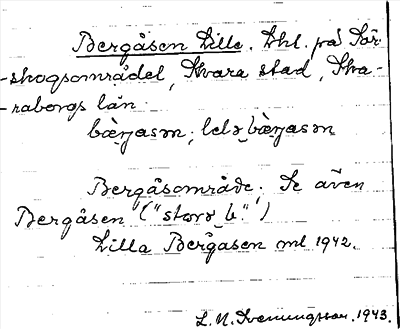 Bergåsen Lille. Lhl. på Sör-
-skogsområdet, Skara stad, Ska-
-raborgs län.
bæŋasən; lelə bæŋasən
Bergåsområde. Se även
Bergåsen ("storə b.")
Lilla Bergåsen ml 1942.
1943.